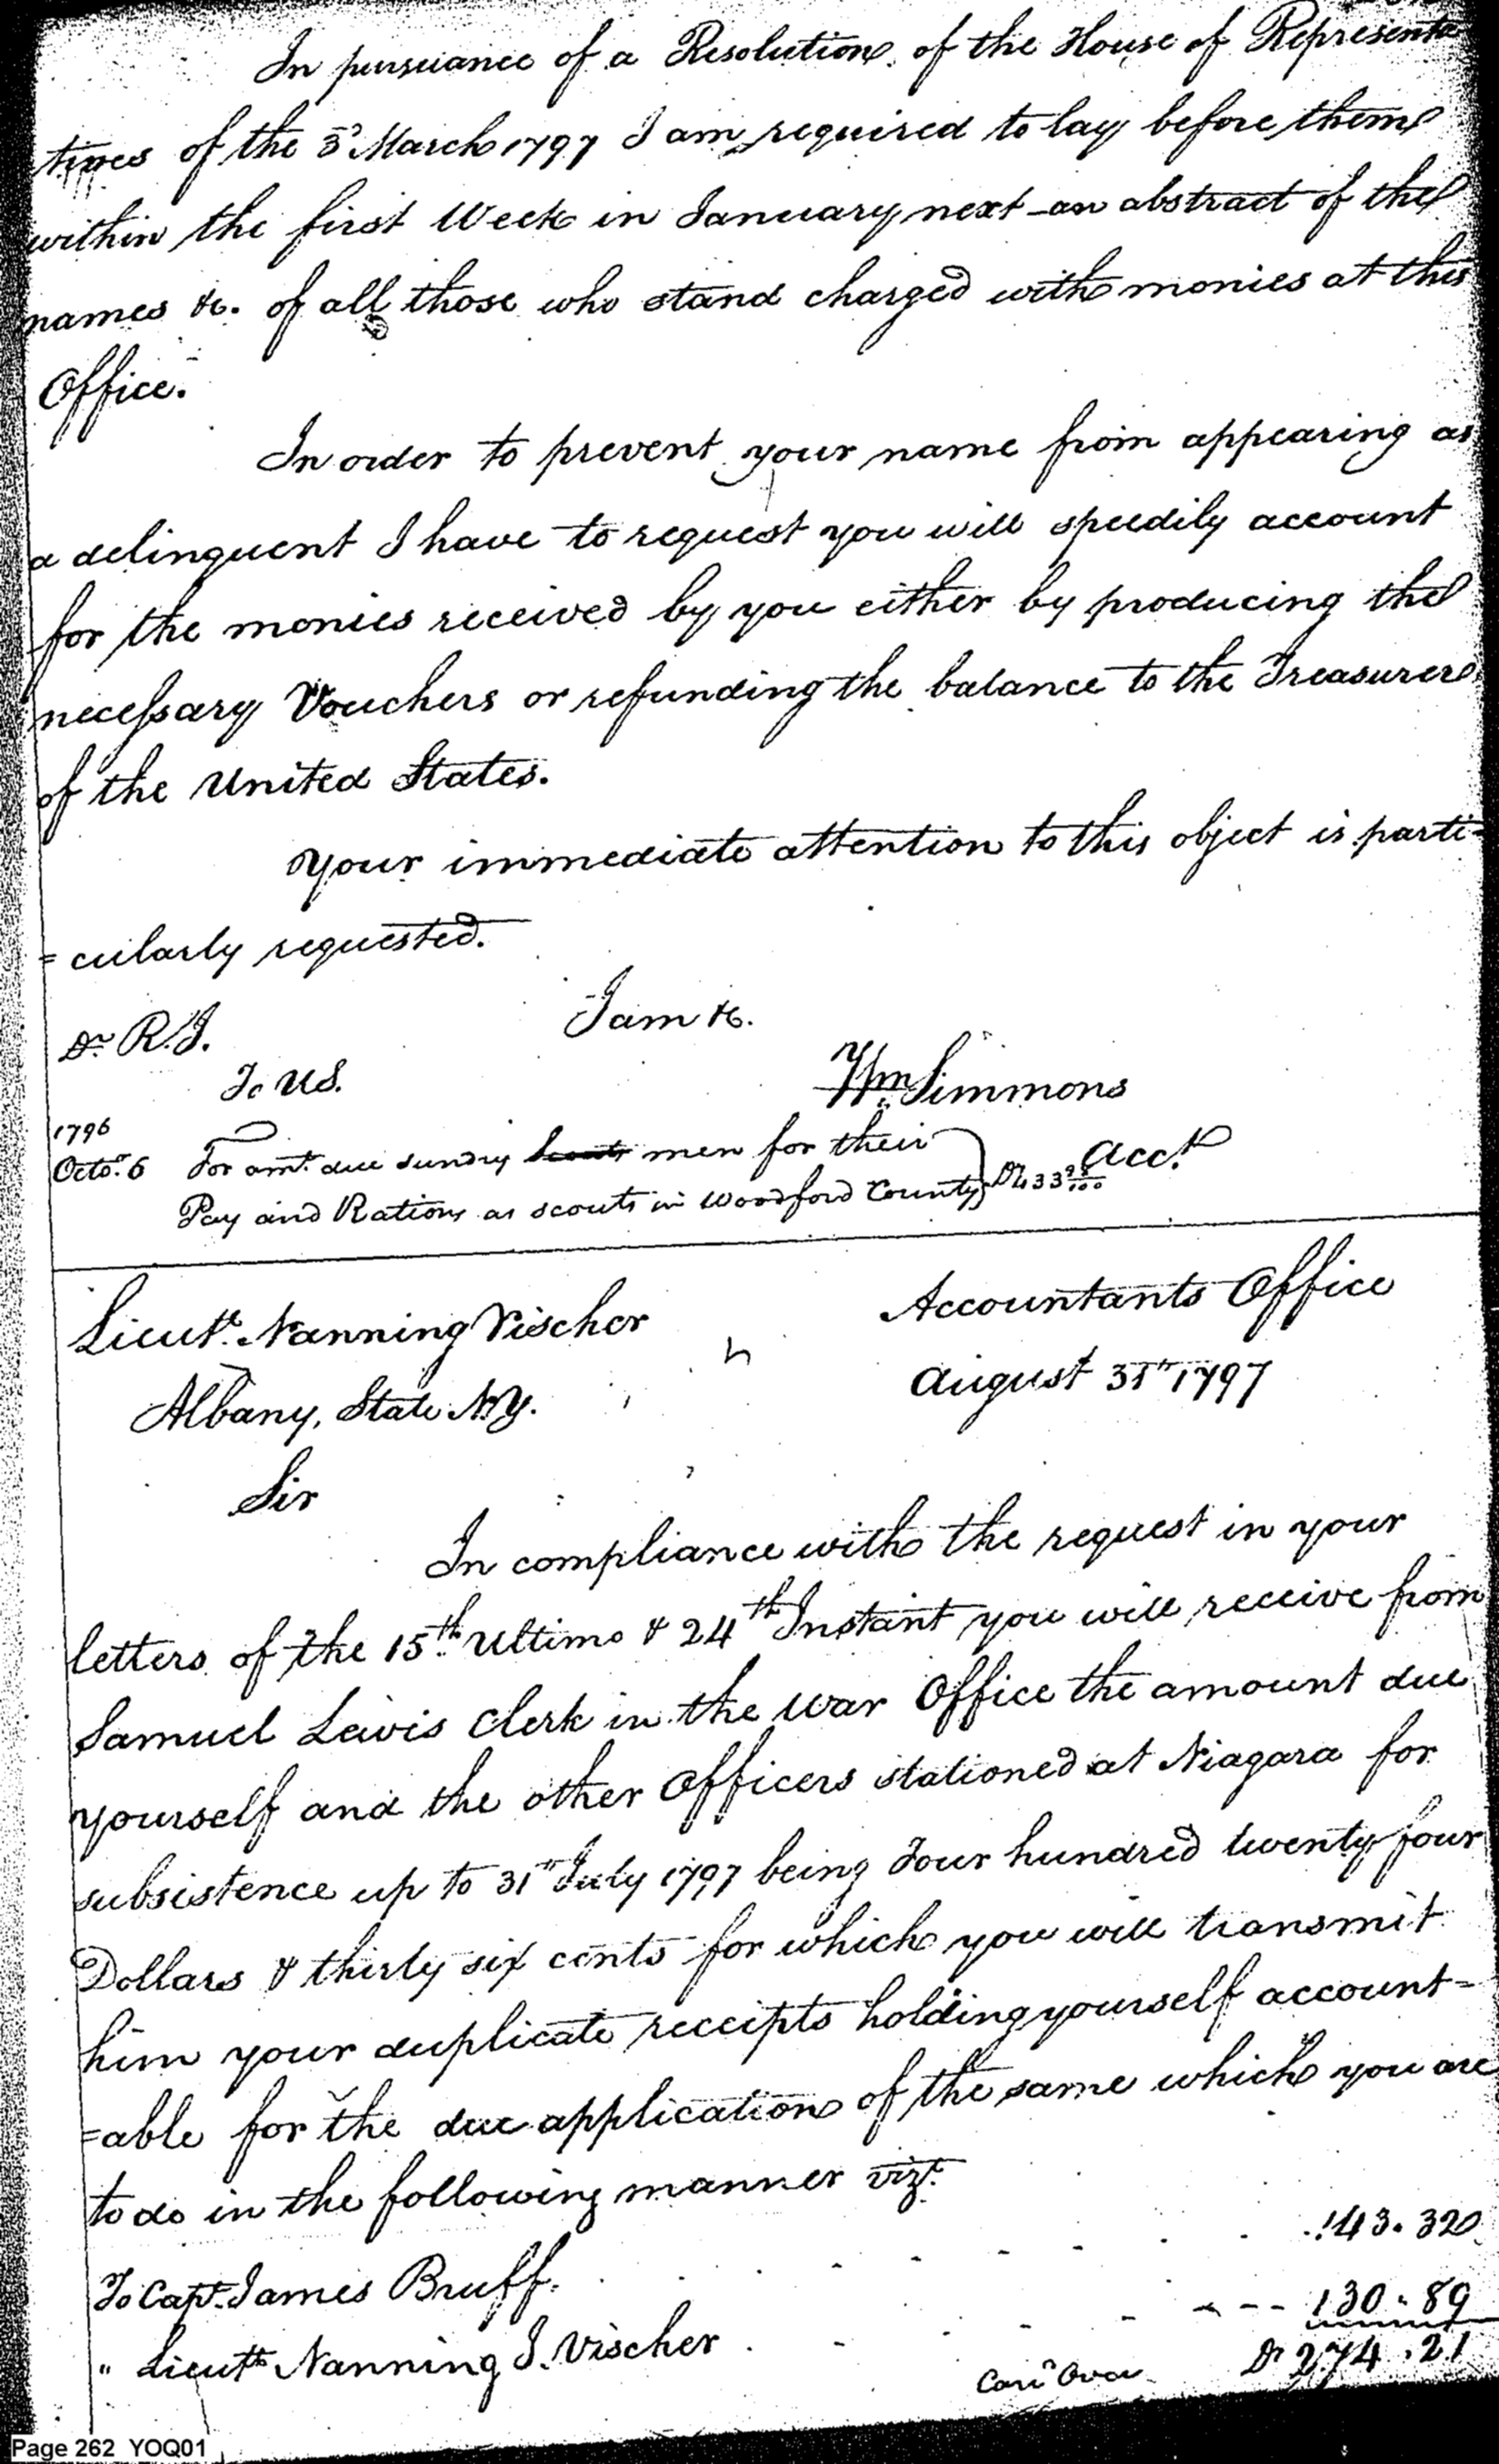 In pursuance of a Resolution of the House of Representa
tives of the 3d March 1797 I am required to lay before them
within the first Week in January next an abstract of the
names &c. of all those who stand charged with monies at this
Office.
In order to prevent your name from appearing as
a delinquent I have to request you will speedily account
for the monies received by you either by producing the
necessary Vouchers or refunding the balance to the Treasurer
of the United States.
Your immediate attention to this object is parti=
=cularly requested.
I am &c.
Dr R.J.
To US.
Wm Simmons
1796
Octo. 6 For amt. due sundry scouts men for their
Pay and Rations as scouts in Woodford County Acct
Lieut. Nanning Vischer
Accountants Office
Albany, State NY.
August 31st 1797
Sir
In compliance with the request in your
letters of the 15th Ultimo & 24th Instant you will receive from
Samuel Lewis Clerk in the War Office the amount due
yourself and the other Officers stationed at Niagara for
subsistence up to 31st July 1797 being Four hundred twenty four
Dollars & thirty six cents for which you will transmit
him your duplicate receipts holding yourself account=
=able for the due application of the same which you are
to do in the following manner vizt.
To Capt. James Bruff. 143.320
" Lieut. Nanning J. Vischer 130.89
Carrd Over Dr 274.21
Page 262 YOQ01